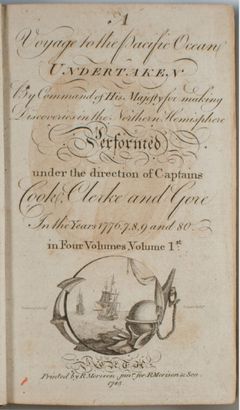 A
Voyage to the Pacific Ocean
UNDERTAKEN
By Command of His Majesty for making
Discoveries in the Northern Hemisphere
Performed
under the direction of Captains
Cook, Clerke and Gore
In the Years 1776.7.8.9 and 80.
in Four Volumes Volume 1.st
PERTH
Printed by R. Morison junr. for R. Morison & Son.
1785